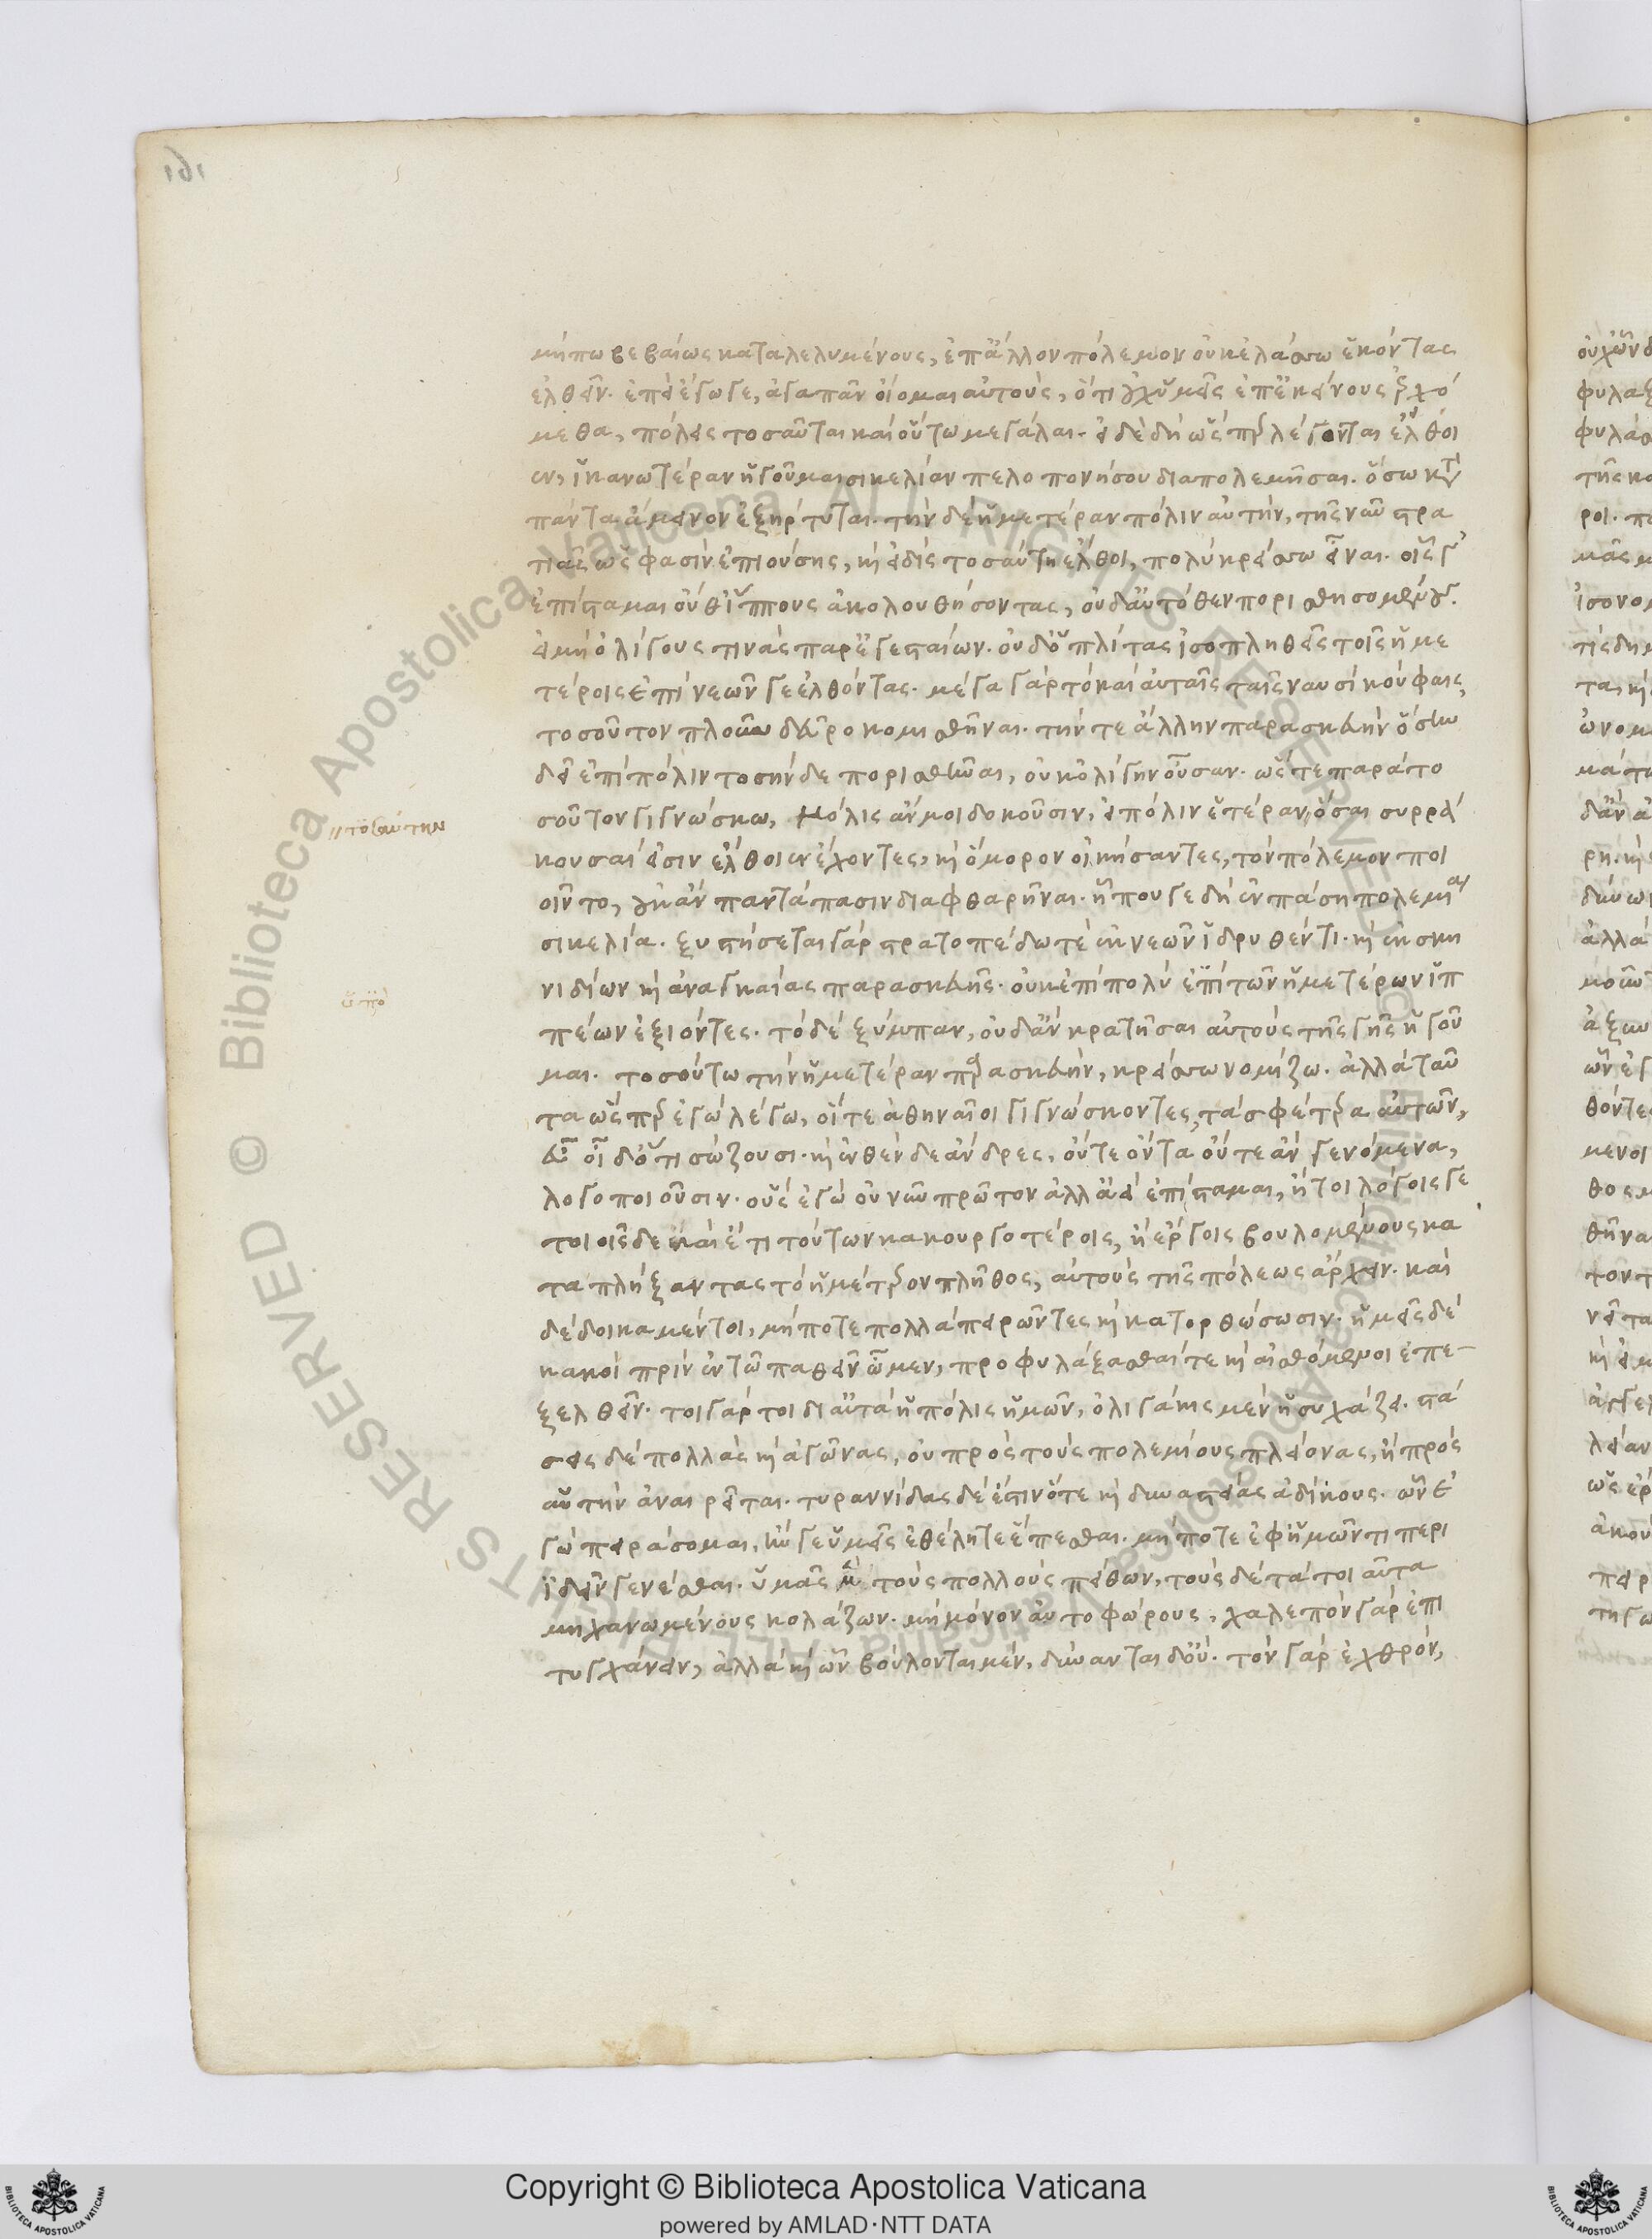 μήπω βεβαίως καταλελυμένους, ἐπ' ἄλλον πόλεμον οὐκ ἐλάσσω ἑκόντας
ἐλθεῖν. ἐπεὶ ἔγωγε, ἀγαπᾶν οἴομαι αὐτοὺς, ὅτι οὐχ ἡμεῖς ἐπ' ἐκείνους ἐρχό
μεθα, πόλεις τοσαῦται καὶ οὕτω μεγάλαι. εἰ δὲ δὴ ὥσπερ λέγονται ἔλθοι
εν, ἱκανωτέραν ἡγοῦμαι σικελίαν πελοπονήσου διαπολεμῆσαι. ὅσω κατὰ
πάντα ἄμεινον ἐξήρτυται. τὴν δὲ ἡμετέραν πόλιν αὐτὴν, τῆς νῦν στρα
τιᾶς ὥς φασὶν ἐπιούσης, καὶ εἰ δὶς τοσαύτη ἔλθοι, πολὺ κρείσσω εἶναι. οἷς γ'
ἐπίσταμαι οὔθ' ἵππους ἀκολουθήσοντας, οὐδ' αὐτόθεν πορισθησομένους.
εἰ μὴ ὀλίγους τινὰς παρ' ἐγεσταίων. οὐδ' ὁπλίτας ἰσοπληθεῖς τοῖς ἡμε
τέροις ἐπὶ νεῶν γε ἐλθόντας. μέγα γὰρ τὸ καὶ αὐταῖς ταῖς ναυσὶ κούφαις,
τοσοῦτον πλοῦν δεῦρο κομισθῆναι. τήν τε ἄλλην παρασκευὴν ὅσην
δεῖ ἐπὶ πόλιν τοσήνδε πορισθῆναι, οὐκ ὀλίγην οὖσαν. ὥστε παρὰ το
σοῦτον γιγνώσκω, μόλις ἄν μοι δοκοῦσιν, εἰ πόλιν ἑτέραν ὅσαι συρρά
κουσαί εἰσιν ἔλθοιεν ἔχοντες, καὶ ὅμορον οἰκήσαντες, τὸν πόλεμον ποι
οῖντο, οὐκ ἂν παντάπασιν διαφθαρῆναι. ἦ που γε δὴ ἐν πάση πολεμία
σικελία. ξυστήσεται γὰρ στρατοπέδω τὲ ἐκ νεῶν ἱδρυθέντι. καὶ ἐκ σκη
νιδίων καὶ ἀναγκαίας παρασκευῆς. οὐκ ἐπὶ πολὺ ἐπὶ τῶν ἡμετέρων ἱπ
πέων ἐξιόντες. τὸ δὲ ξύμπαν, οὐδ' ἂν κρατῆσαι αὐτοὺς τῆς γῆς ἡγοῦ
μαι. τοσούτω τὴν ἡμετέραν παρασκευὴν, κρείσσω νομίζω. ἀλλὰ ταῦ
τα ὥσπερ ἐγὼ λέγω, οἵ τε ἀθηναῖοι γιγνώσκοντες, τὰ σφέτερα αὐτῶν,
εὖ οἶδ' ὅτι σώζουσι. καὶ ἐνθένδε ἄνδρες, οὔτε ὄντα οὔτε ἂν γενόμενα,
λογοποιοῦσιν. οὓς ἐγὼ οὐ νῦν πρῶτον ἀλλ' ἀεὶ ἐπίσταμαι, ἤτοι λόγοις γε
τοιοῖσδε καὶ ἔτι τούτων κακουργοτέροις, ἢ ἔργοις βουλομένους κα
ταπλήξαντας τὸ ἡμέτερον πλῆθος, αὐτοὺς τῆς πόλεως ἄρχειν. καὶ
δέδοικα μέντοι, μήποτε πολλὰ πειρῶντες καὶ κατορθώσωσιν. ἡμεῖς δὲ
κακοὶ πρὶν ἐν τῶ παθεῖν ὦμεν, προφυλάξασθαί τε καὶ αἰσθόμενοι ἐπε-
ξελθεῖν. τοιγάρτοι δι' αὐτὰ ἡ πόλις ἡμῶν, ὀλιγάκις μὲν ἡσυχάζει. στά
σεις δὲ πολλὰς καὶ ἀγῶνας, οὐ πρὸς τοὺς πολεμίους πλείονας, ἢ πρὸς
αὑτὴν ἀναιρεῖται. τυραννίδας δὲ ἔστιν ὅτε καὶ δυναστείας ἀδίκους. ὧν ἐ
γὼ πειράσομαι, ἤν γε ὑμεῖς ἐθέλητε ἕπεσθαι. μήποτε ἐφ' ἡμῶν τι περι
ϊδεῖν γενέσθαι. ὑμᾶς μὲν τοὺς πολλοὺς πείθων, τοὺς δὲ τὰ τοιαῦτα
μηχανωμένους κολάζων. μὴ μόνον αὐτοφώρους, χαλεπὸν γὰρ ἐπι
τυγχάνειν, ἀλλὰ καὶ ὧν βούλονται μέν, δύνανται δ' οὔ. τὸν γὰρ ἐχθρὸν,
τοσαύτην
ὑπὸ
Copyright © Biblioteca Apostolica Vaticana
powered by AMLAD·NTT DATA